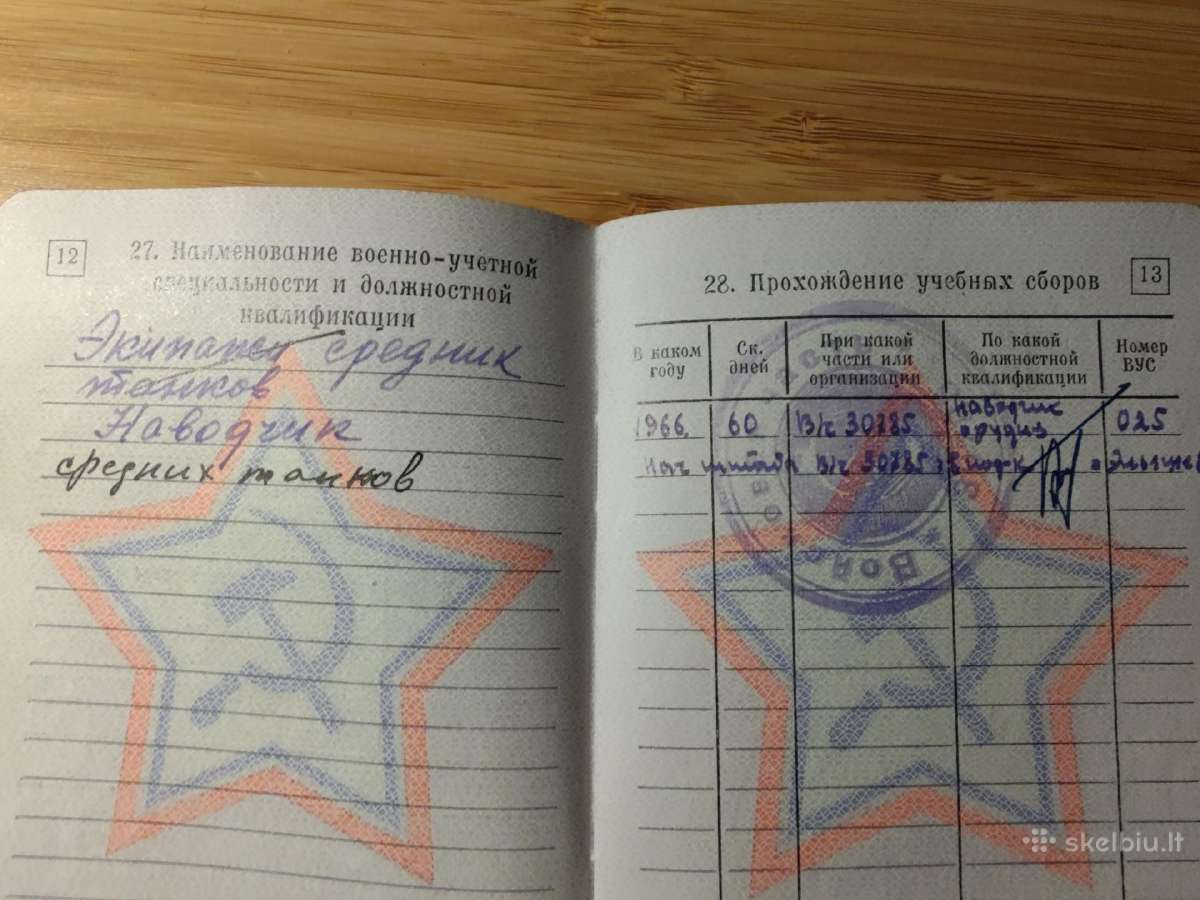 12
27. Наименование военно-учетной
специальности и должностной
квалификации
Экипажей средних
танков
Наводчик
средних танков
28. Прохождение учебных сборов
13
В каком году
Ск. дней
При какой части или организации
По какой должностной квалификации
Номер ВУС
1966 60 В/ч 30785 наводчик орудия 025
Нач штаба В/ч 30785
Вой
skelbiu.lt